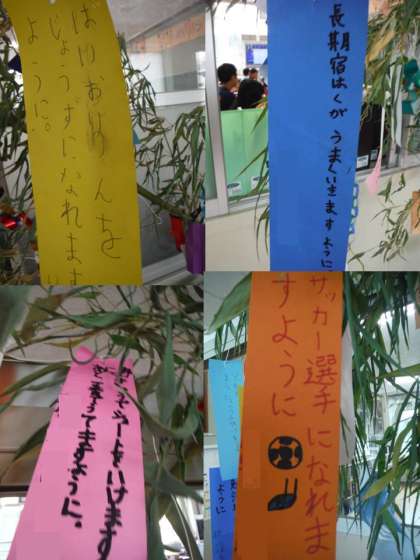 ばいおりんを
じょうずになれます
ように。
長期宿はくが うまくいきますように
シートをいけます
てますように。
サッカー選手になれま
すように
ように